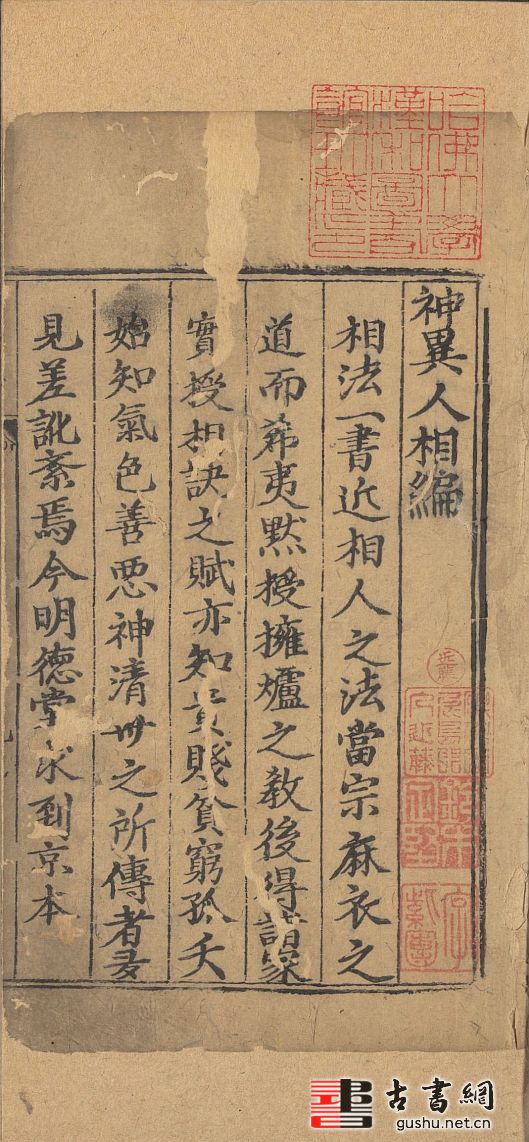 神異人相編
相法一書近相人之法當宗麻衣之
道而希夷黙授擁爐之教後得諸家
實授相訣之賦亦知貴賤貧窮孤夭
始知氣色善悪神清丗之所傳者多
見差訛紊焉今明德堂求到京本
哈佛大學漢和圖書館珍藏印
古書網
gushu.net.cn